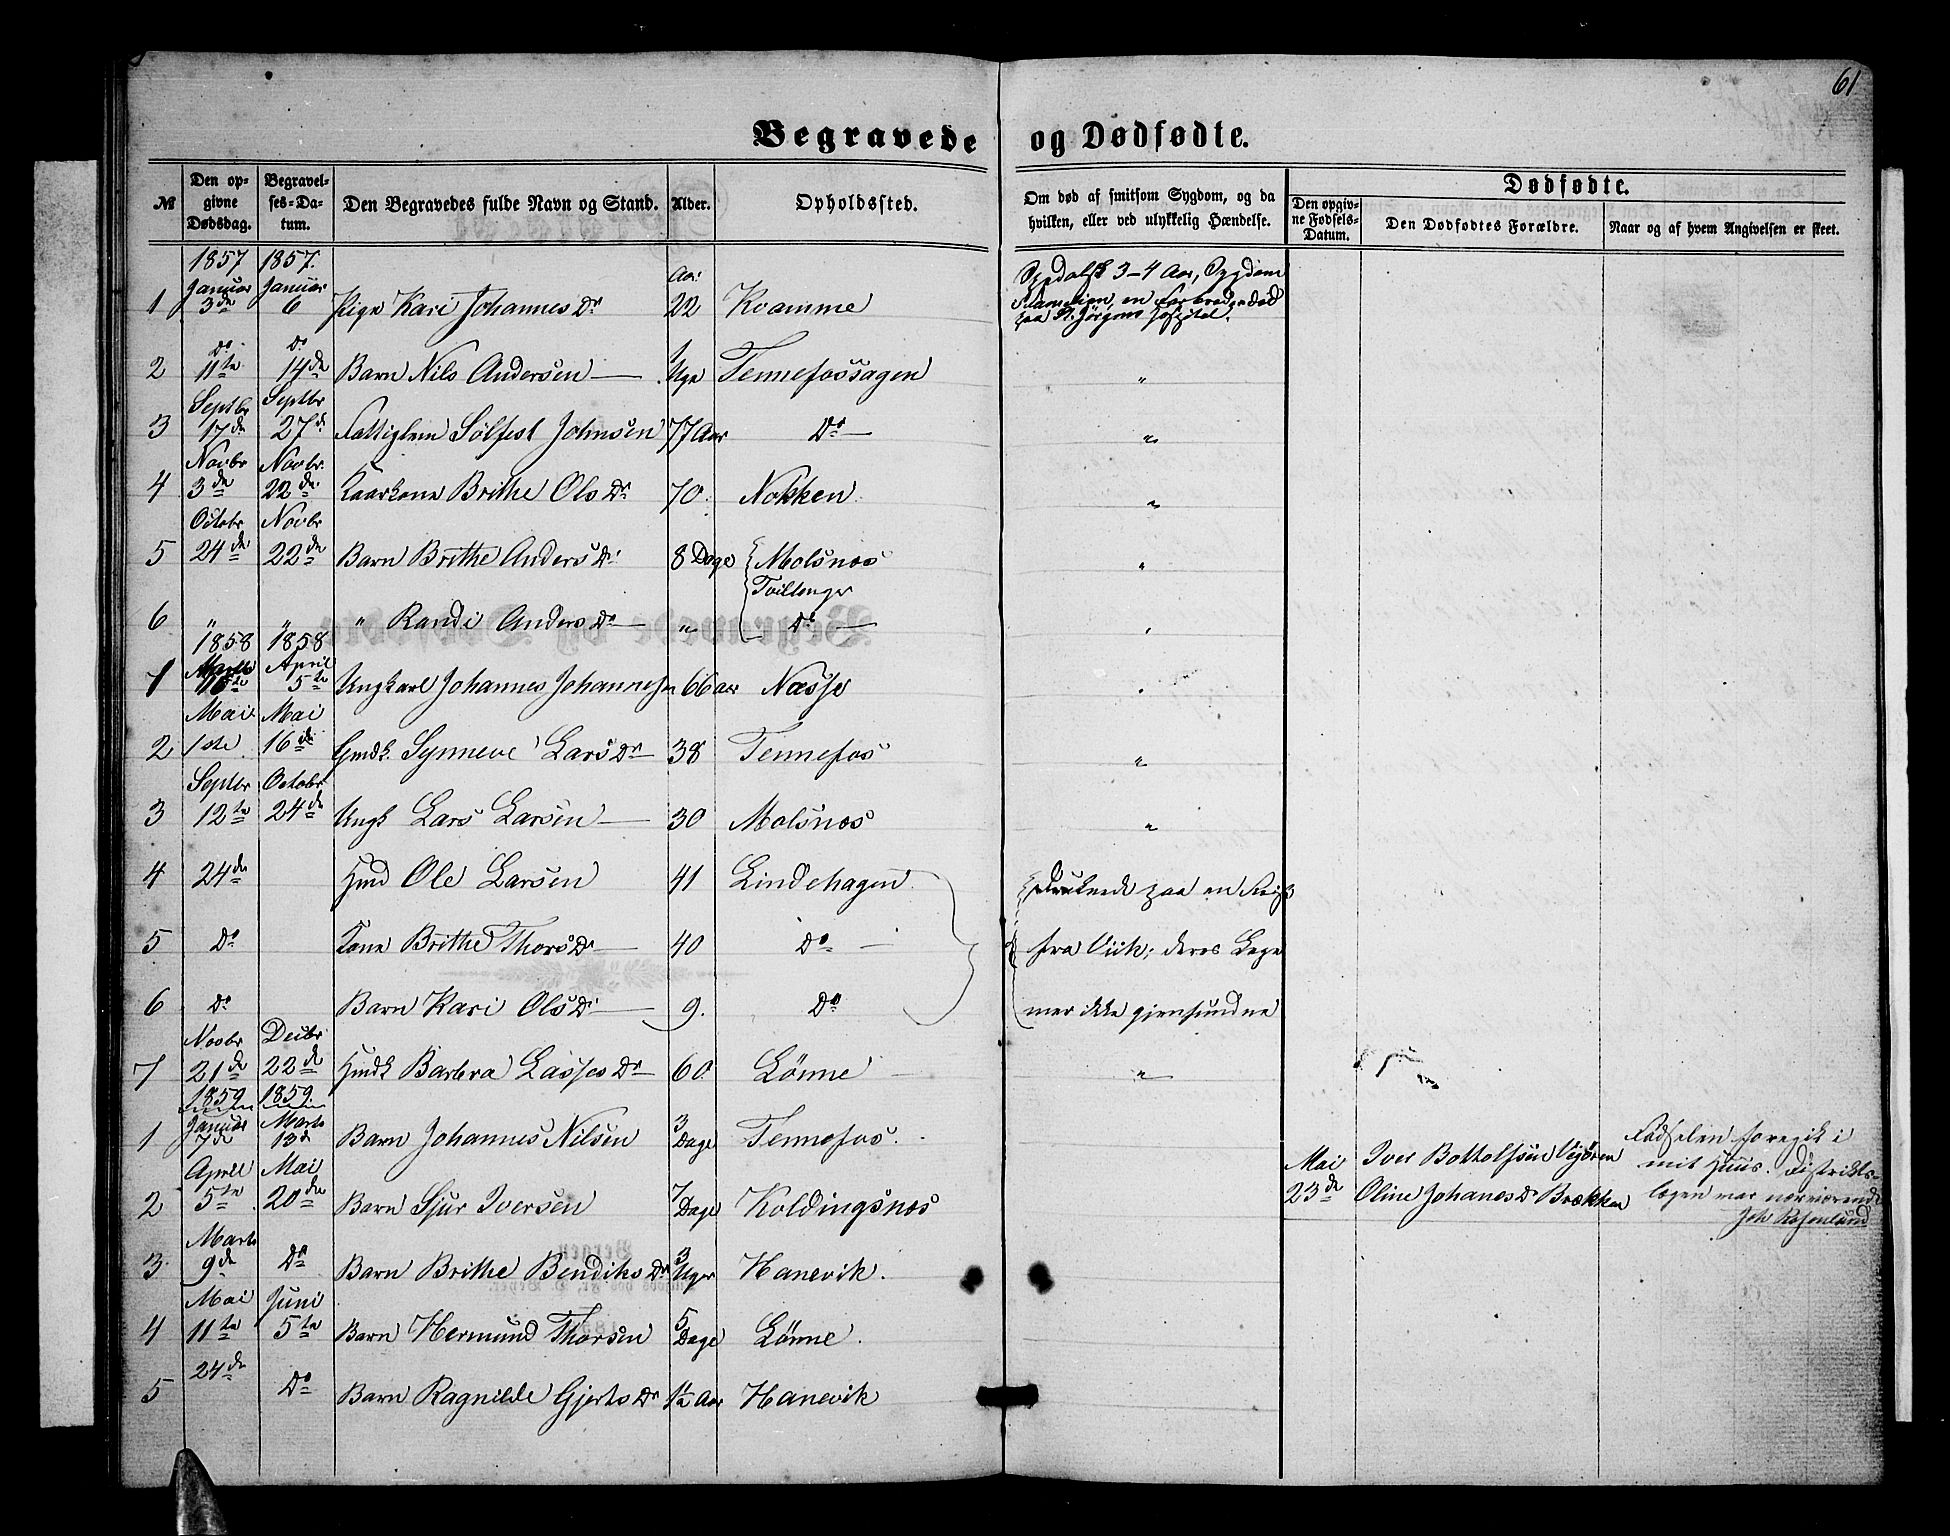 61
Begravede og Dødfødte.
№ Den opgivne Dødsdag. Begravelses-Datum. Den Begravedes fulde Navn og Stand. Alder. Opholdssted. Om død af smitsom Sygdom, og da hvilken, eller ved ulykkelig Hændelse. Dødfødte. Den opgivne Fødsels-Datum. Den Dødfødtes Forældre. Naar og af hvem Angivelsen er skeet.
1857 1857.
Januar Januar Aar
1 3de 6 Pige Kari Johannes Dr 22 Kvamme 3-4 Aar, Sygdom en død paa St. Jørgens Hospital.
Do Do
2 11te 14de Barn Nils Andersen — 1 Uge Tennefossagen "
Septbr Septbr
3 17de 27de Fattiglem Sølfest Johnsen 77 Aar Do — "
Novbr Novbr.
4 3de 22de Kaarkone Brithe Ols Dr 70. Nokken. "
Octobr Novbr
5 24de 22de Barn Brithe Anders Dr 8 Dage Molsnæs "
Tvillinger
6 " " " Randi Anders Dr — " Do — "
1858 1858
Marts April
1 5te Ungkarl Johannes Johannesen 66 Aar Næsse "
Mai Mai
2 1ste 16de Gmdk. Synneve Lars Dr — 38 Tennefos "
Septbr Octobr
3 12te 24de Ungk Lars Larsen — 30 Molsnæs "
4 24de Hmd Ole Larsen 41 Lindehagen Druknede paa en Reise
5 Do Kone Brithe Thors Dr — 40 Do — fra Viik; deres Lege
6 Do Barn Kari Ols Dr — 9. Do mer ikke gjenfundne
Novbr Decbr
7 21de 22de Hmdk Barbra Lasses Dr — 60 Lønne "
1859 1859.
Januar Marts
1 7de 13de Barn Johannes Nilsen 3 Dage Tennefos.
April Mai
2 5te 20de Barn Sjur Iversen 7 Dage Koldingsnæs
Mai 23de Iver Bottolfsen Oline Johanes Dr Brækken Fødselen foregik i mit Huus. Distriktslægen var nærværende Joh Rosenlund
Marts
3 9de Do Barn Brithe Bendiks Dr 3 Uger Hanevik.
Mai Juni
4 11te 5te Barn Hermund Thorsen 5 Dage Lønne.
5 24de Do Barn Ragnilde Gjerts Dr 1½ Aar Hanevik